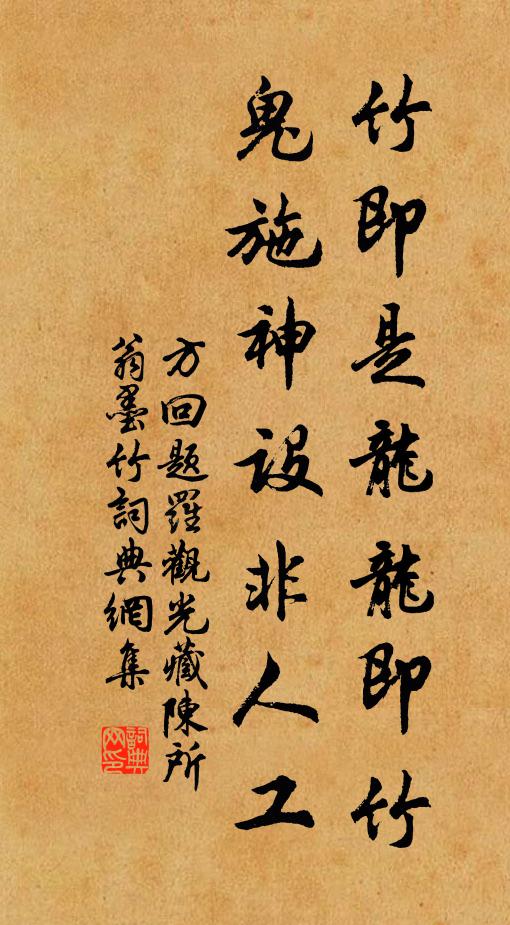 竹即是龍龍即竹
鬼施神設非人工
方回題羅觀光藏陳所
翁墨竹詞典網集
詞典
网印